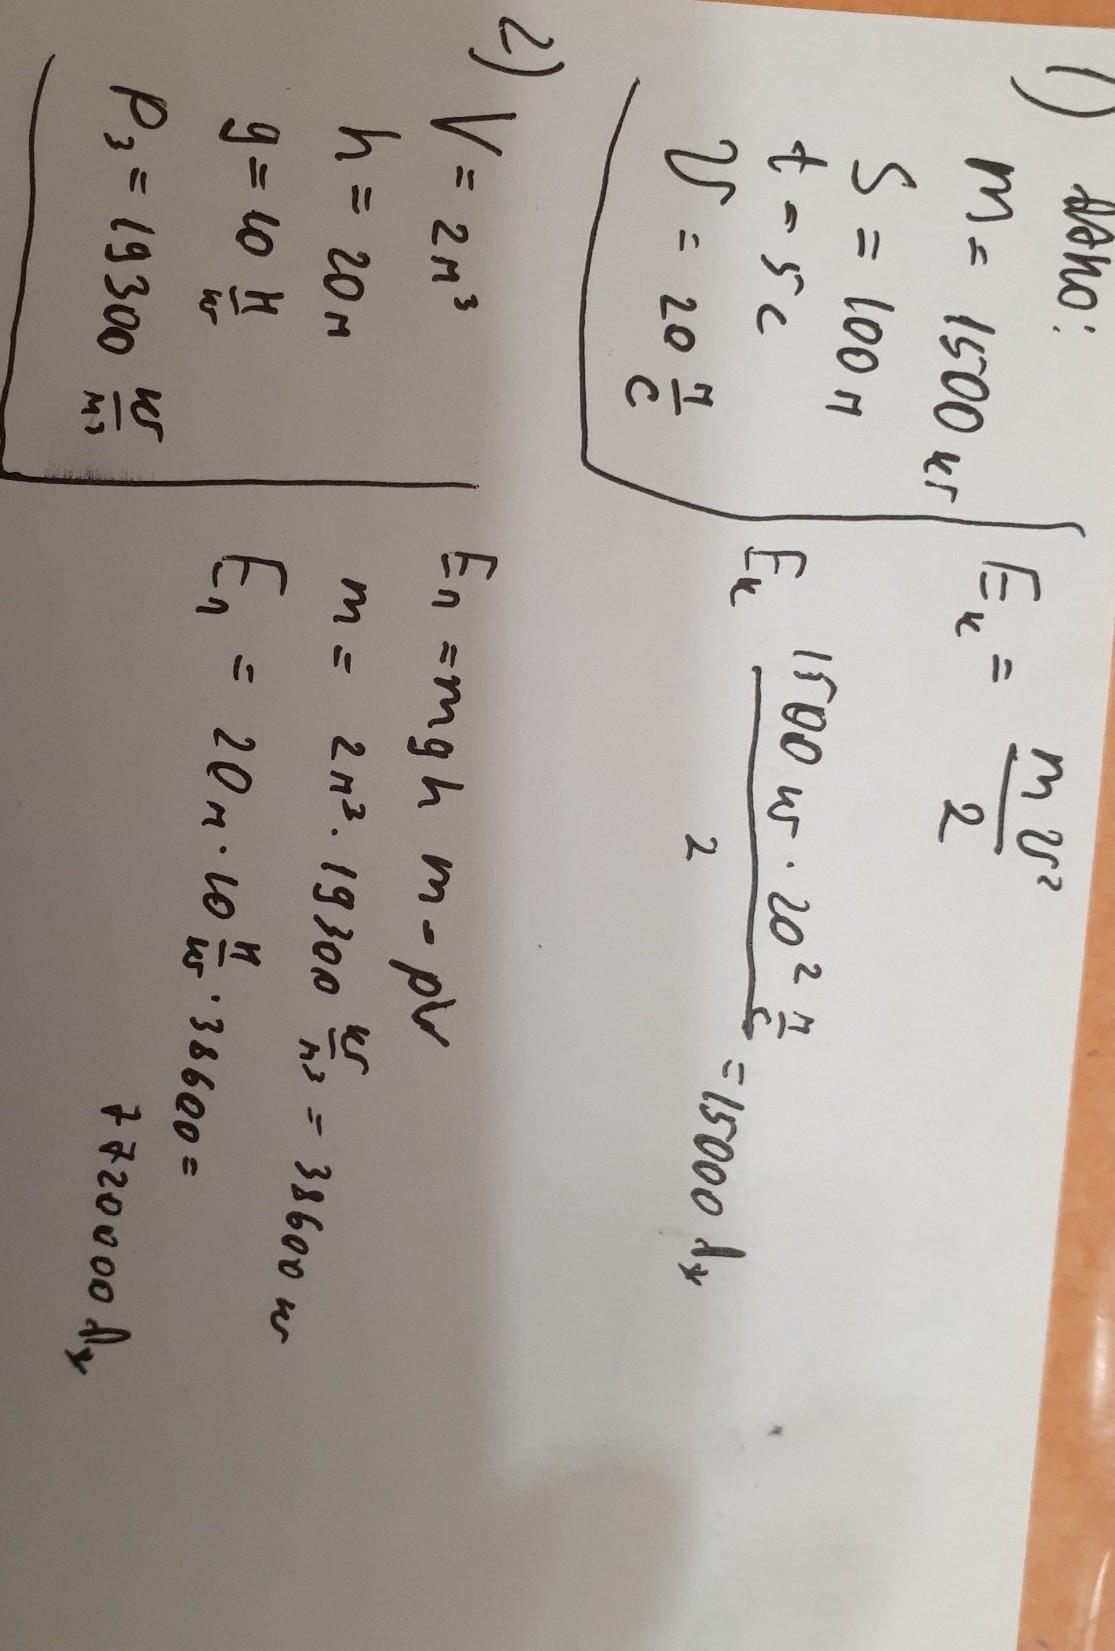 1) Дано:
m = 1500 кг
S = 100 м
t = 5 с
v = 20 м/с
Eк = mv²/2
Eк 1500 кг · 20² м/с / 2 = 15000 Дж
2) V = 2 м³
h = 20 м
g = 10 Н/кг
Pз = 19300 кг/м³
Eп = mgh m = ρv
m = 2 м³ · 19300 кг/м³ = 38600 кг
Eп = 20 м · 10 Н/кг · 38600 =
7720000 Дж